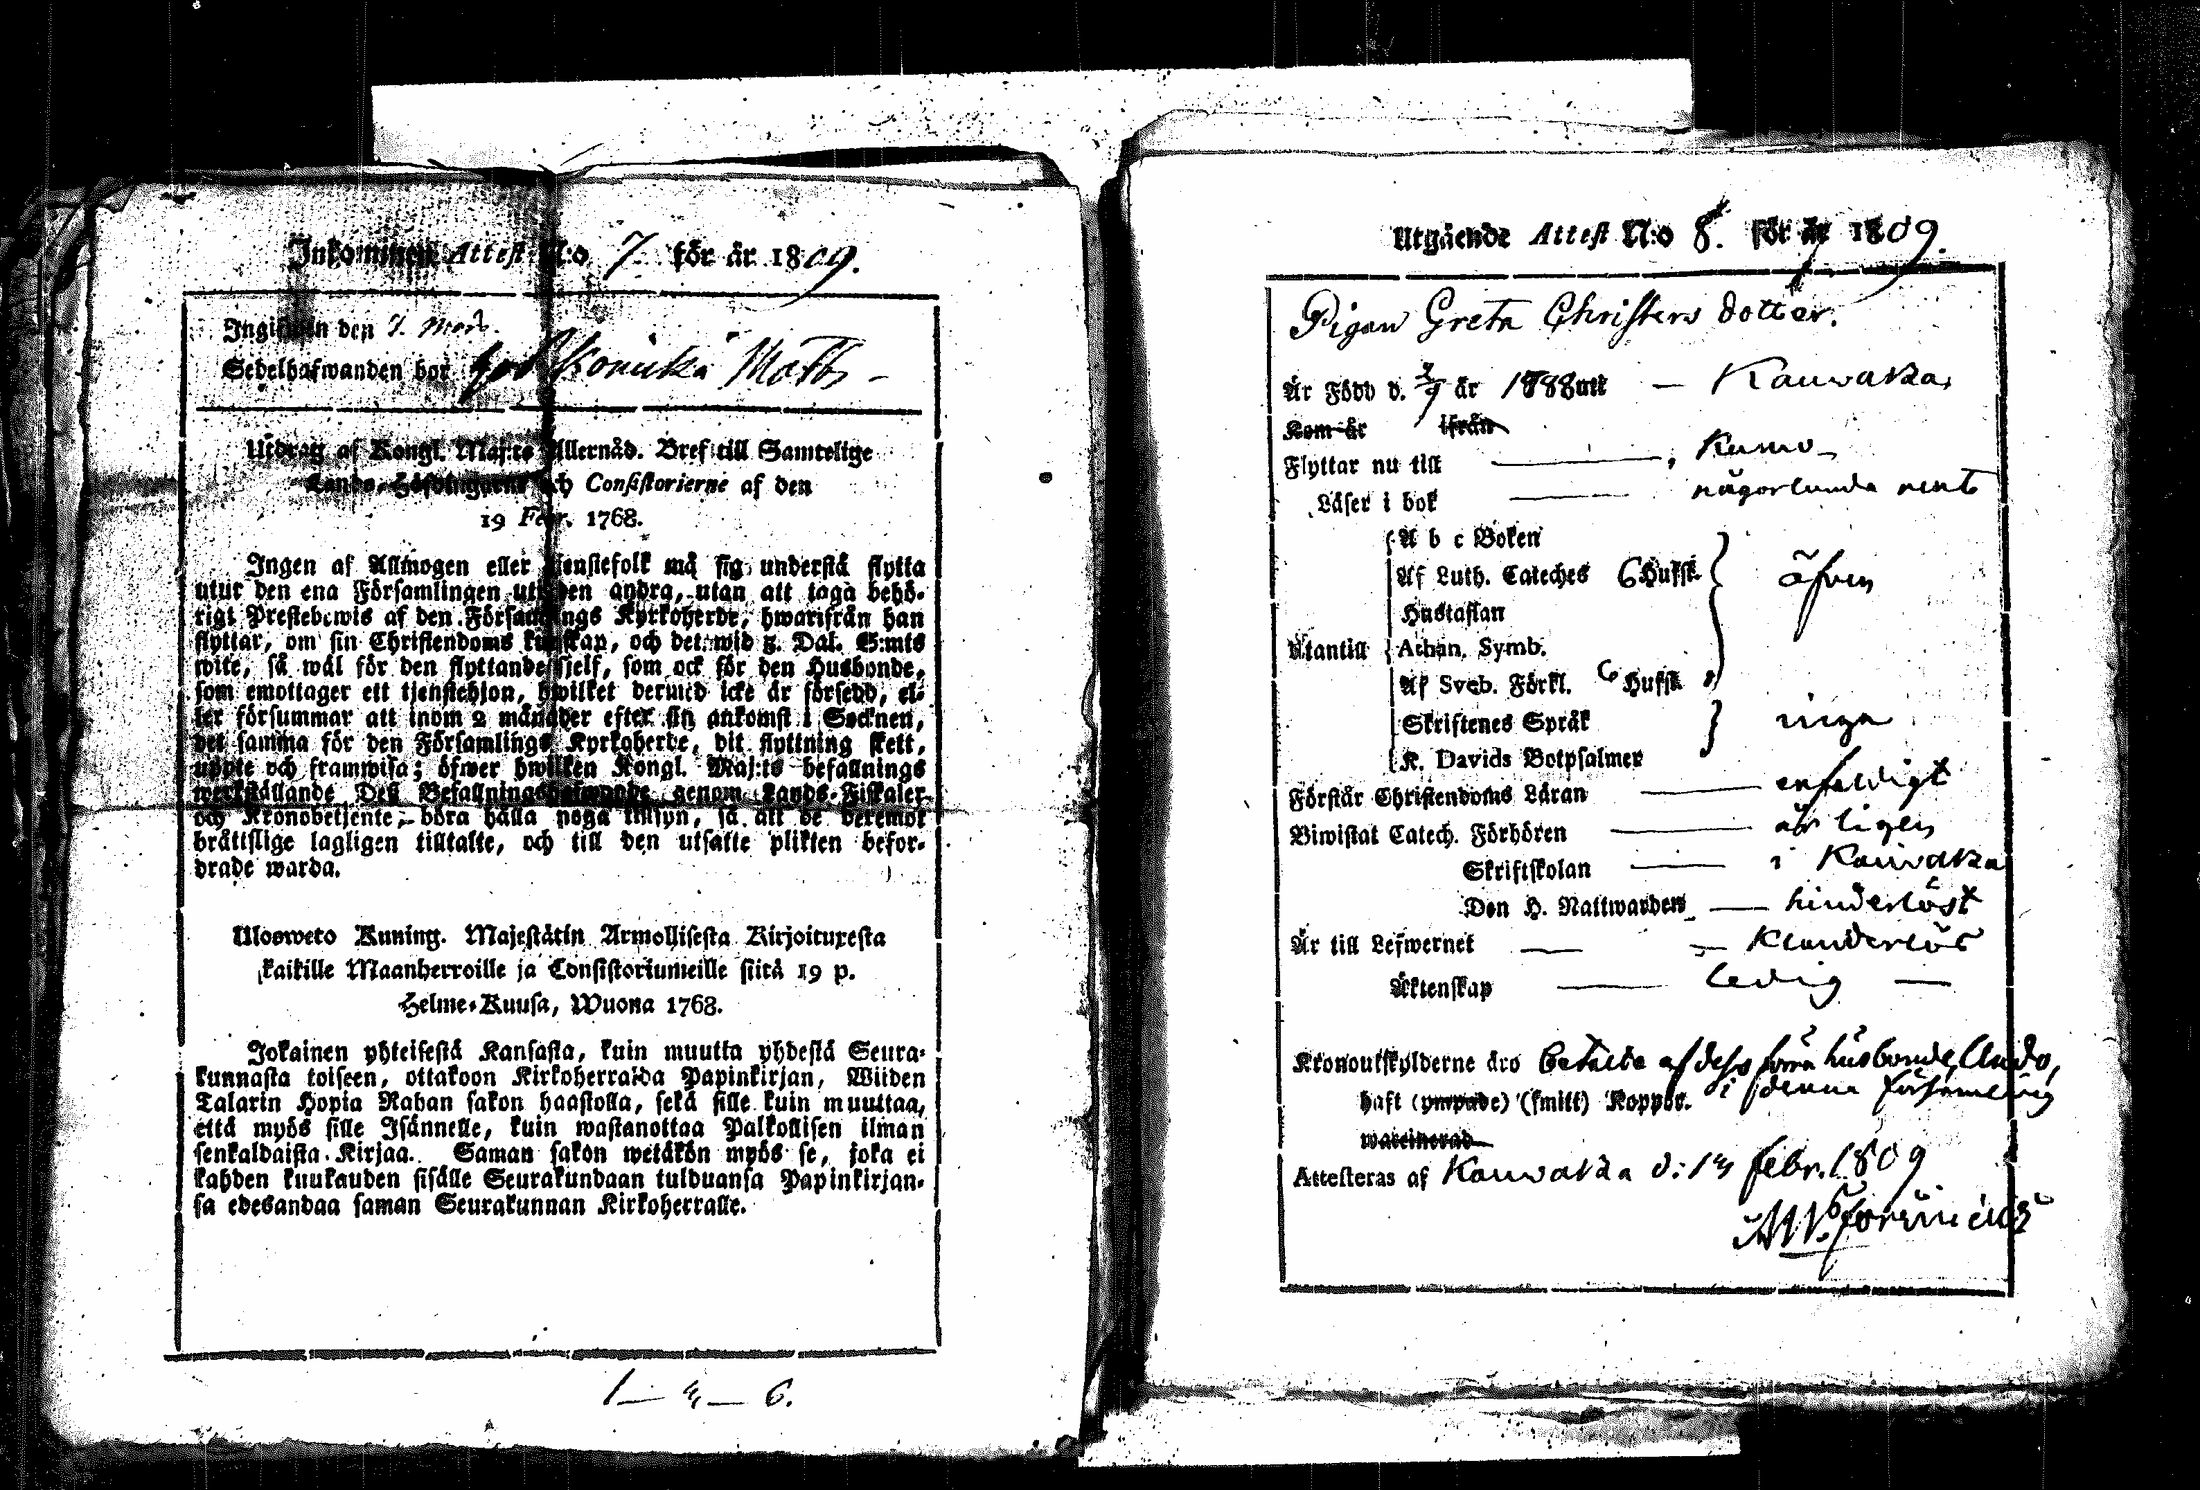 Inkommen Attest N:o 7. för år 1809.
Ingifwen den 7. Mart.
Sedelhafwanden bor Matts
Utdrag af Kongl. Maj:ts Allernåd. Bref till Samtelige
Lands-Höfdingarne och Consistorierne af den
19 Febr. 1768.
Ingen af Allmogen eller tjenstefolk må sig understå flytta
utur den ena Församlingen uti den andra, utan att taga behö-
rigt Prestebewis af den Församlings Kyrkoherde, hwarifrån han
flyttar, om sin Christendoms kunskap, och det wid 5. Dal. S:mts
wite, så wäl för den flyttande sjelf, som ock för den Husbonde,
som emottager ett tjenstehjon, hwilket dermed icke är försedd, el-
ler försummar att inom 2 månader efter sin ankomst i Socknen,
det samma för den Församlings Kyrkoherde, dit flyttning skett,
uppte och framwisa; öfwer hwilken Kongl. Maj:ts befallnings
werkställande Dess Befallningshafwande genom Lands-Fiskaler
och Kronobetjente, böra hålla noga tillsyn, så att de deremot
bråttslige lagligen tilltalte, och till den utsatte plikten befor-
drade warda.
Uloswеto Kuning. Majestätin Armollisesta Kirjoituxesta
kaikille Maanherroille ja Consistoriumeille siitä 19 p.
Helme-Kuusa, Wuona 1768.
Jokainen yhteisestä Kansasta, kuin muutta yhdestä Seura-
kunnasta toiseen, ottakoon Kirkoherralda Papinkirjan, Wiiden
Talarin Hopia Rahan sakon haastolla, sekä sille kuin muuttaa,
että myös sille Isännelle, kuin wastanottaa Palkollisen ilman
senkaldaista Kirjaa. Saman sakon wetäkön myös se, joka ei
kahden kuukauden sisälle Seurakundaan tulduansa Papinkirjan-
sa edesandaa saman Seurakunnan Kirkoherralle.
Utgående Attest N:o 8. för år 1809.
Pigan Greta Christers dotter.
Är Född d. 2/9 år 1788 uti — Kauvatza,
Kom år ifrån
Flyttar nu till — Kumo —
Läser i bok — någorlunda rent
A b c Boken
Af Luth. Cateches 6 Hufst. äfven
Hustaflan
Utantill Athan. Symb.
Af Sveb. Förkl. 6 Hufst.
Skriftenes Språk inga
K. Davids Botpsalmer
Förstår Christendoms Läran — enfaldigt
Biwistat Catech. Förhören — årligen
Skriftskolan — i Kauvatza
Den H. Nattwarden — hinderlöst
Är till Lefwernet — klanderlös
Äktenskap — ledig —
Kronoutskylderne äro betalte af dess förra husbonde
i denna församling
haft (ympade) (smitt) Koppor.
waccinerad
Attesteras af Kauvatza d: 14 febr. 1809
1 — 4 — 6.